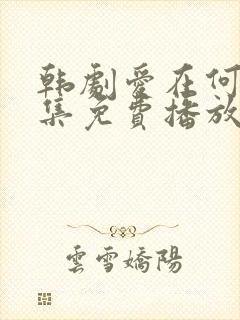 韩劇愛在何
集免費播放
雲雪嬌陽